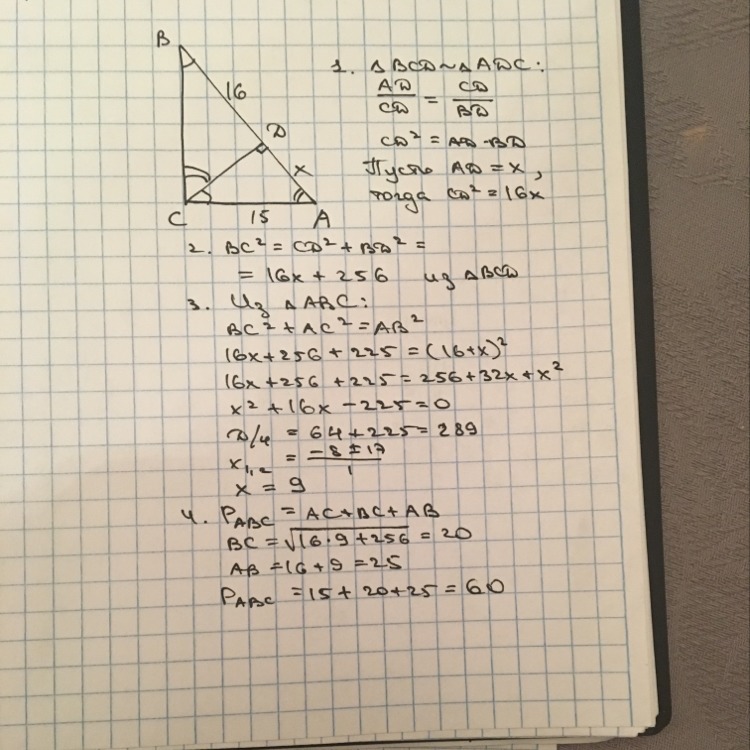 B
16
D
x
C
15
A
1. ΔBCD~ΔADC:
AD/CD = CD/BD
CD² = AD·BD
Пусть AD = x,
тогда CD² = 16x
2. BC² = CD² + BD² =
= 16x + 256 из ΔBCD
3. Из ΔABC:
BC² + AC² = AB²
16x + 256 + 225 = (16+x)²
16x + 256 + 225 = 256 + 32x + x²
x² + 16x - 225 = 0
D/4 = 64 + 225 = 289
x₁,₂ = (-8 ± 17)/1
x = 9
4. P_ABC = AC + BC + AB
BC = √(16·9 + 256) = 20
AB = 16 + 9 = 25
P_ABC = 15 + 20 + 25 = 60